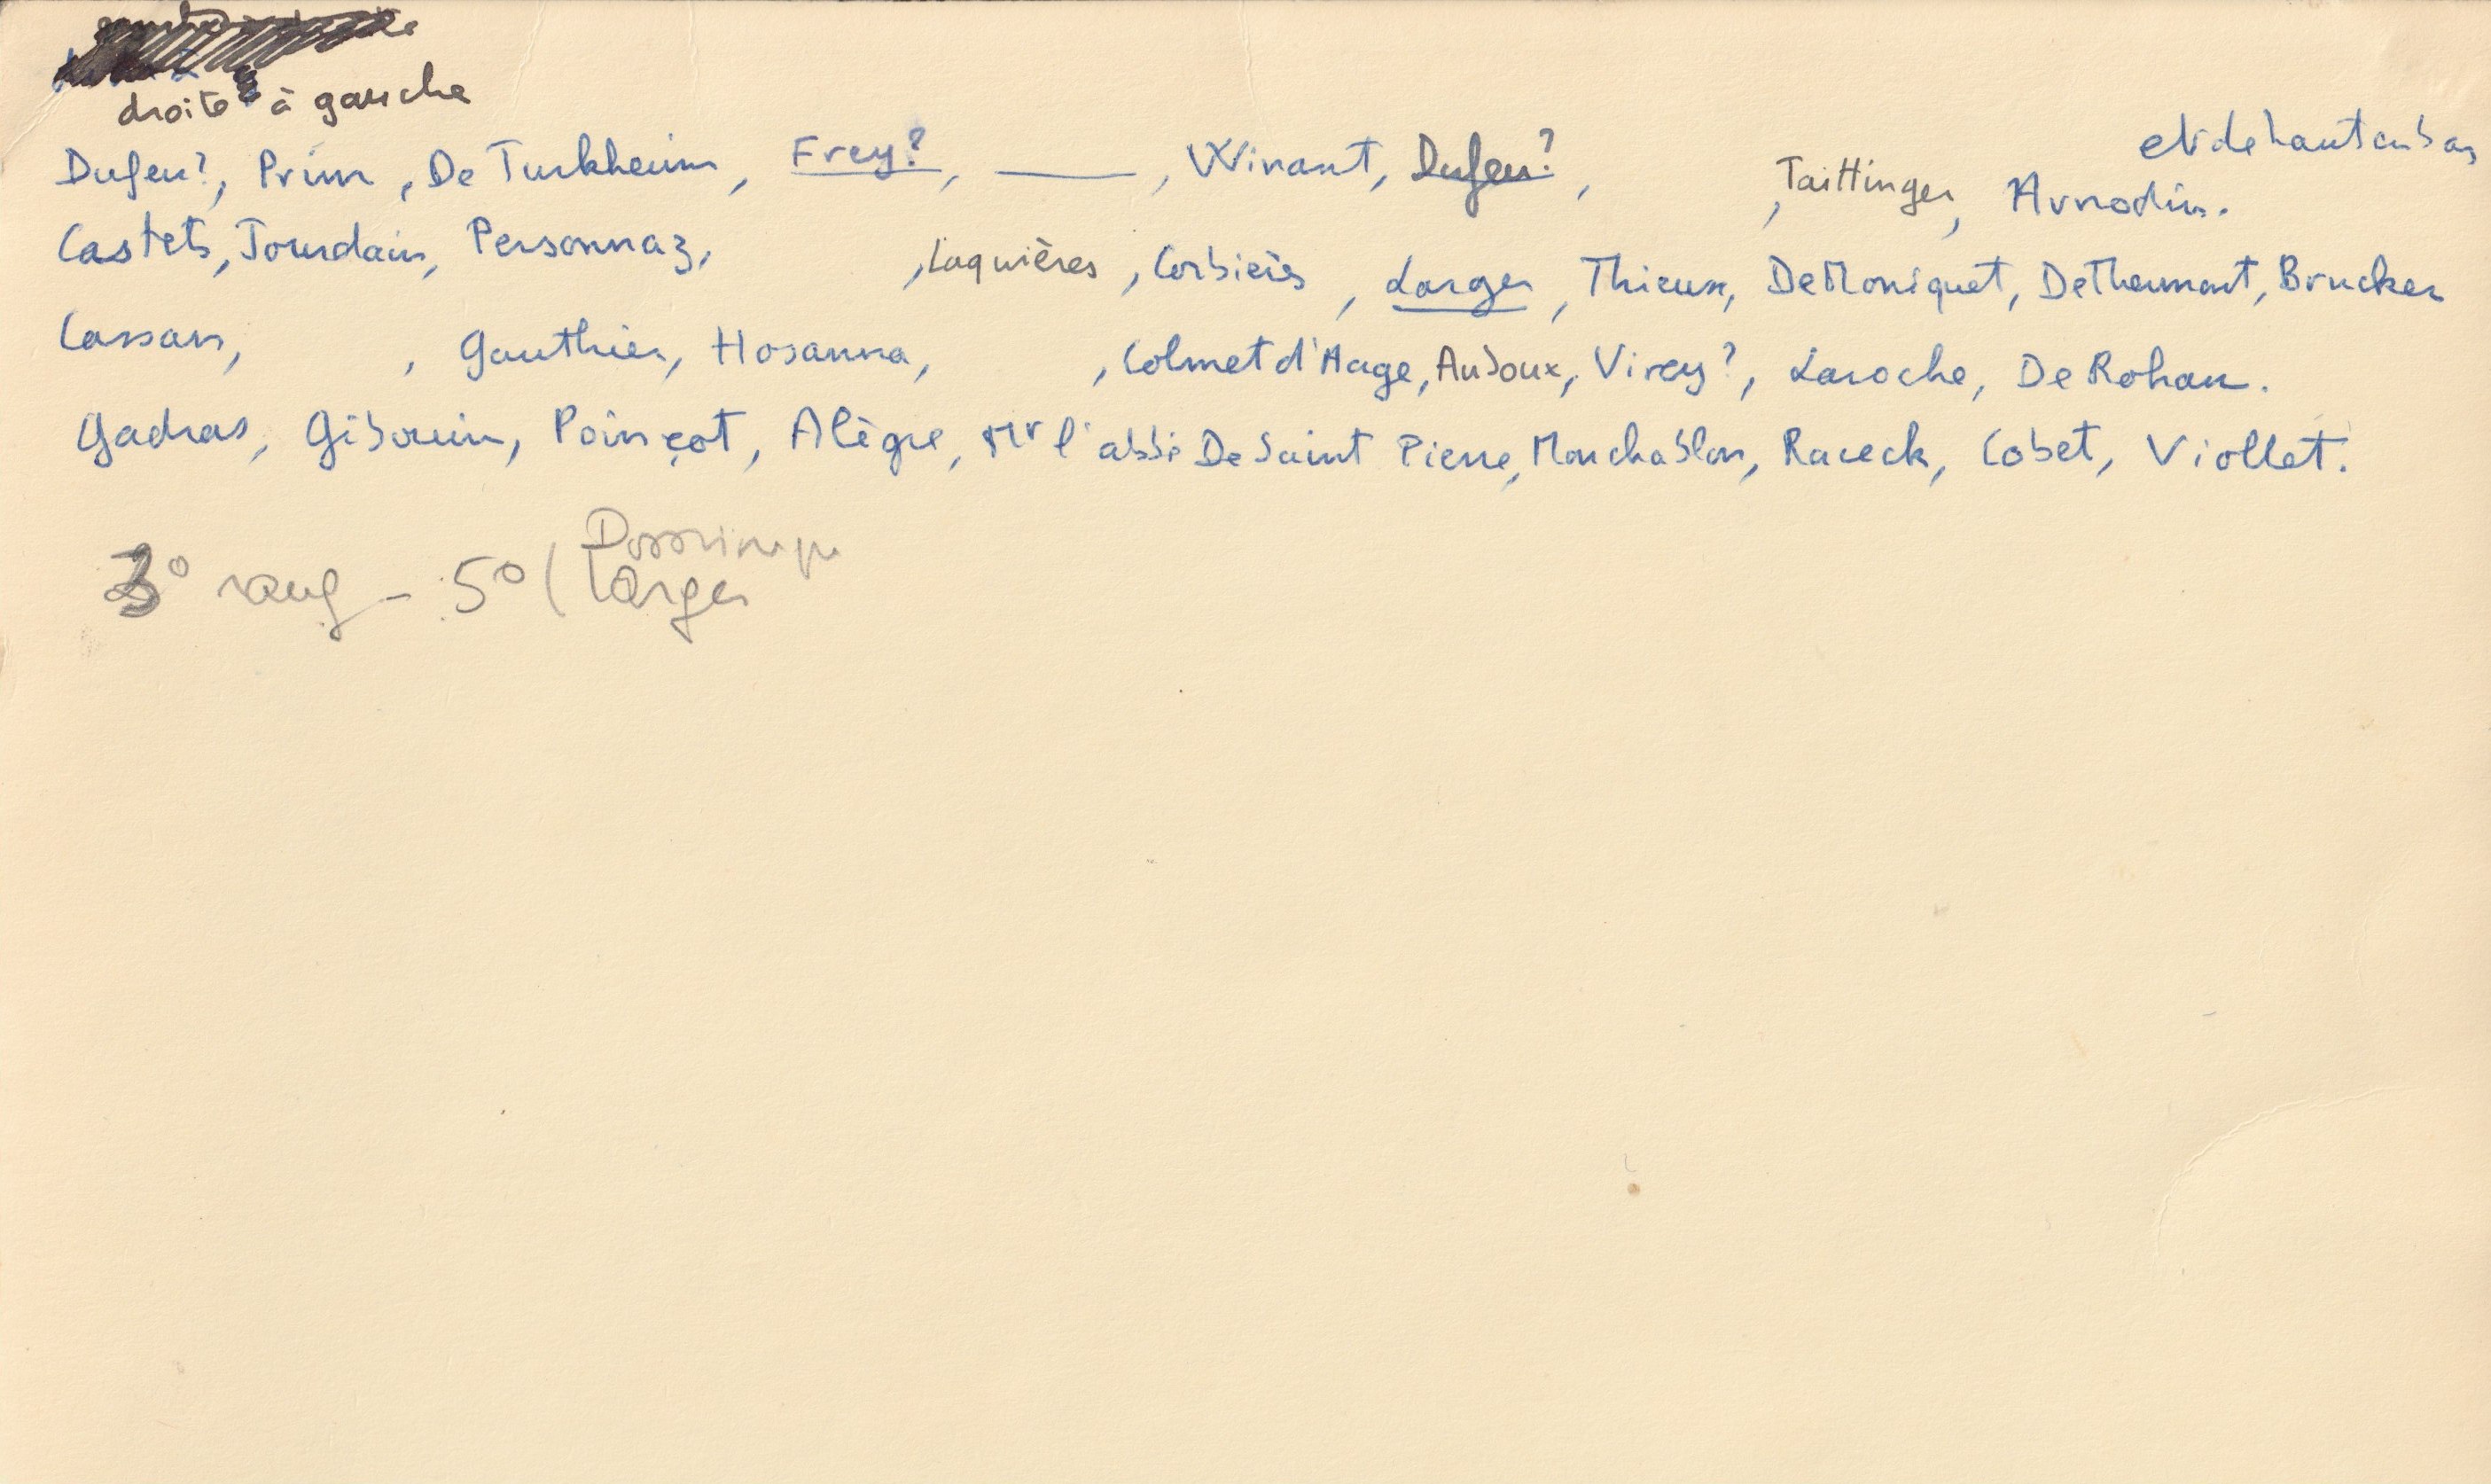 droite à gauche
et de haut en bas
Dufeu?, Prim, De Turkheim, Frey?, ____, Winant, Dufeu?, , Taittinger, Arnodin.
Castets, Jourdain, Personnaz, , Laquières, Corbières, Larger, Thieux, De Moniquet, De Thermont, Brucker
Cassan, , Gauthier, Hosanna, , Colmet d'Aage, Audoux, Virey?, Laroche, De Rohan.
Gadras, Gibouin, Poinçot, Alègre, Mr l'abbé De Saint Pierre, Monchablon, Raceck, Cobet, Viollet.
3° rang - 5° ( Larger